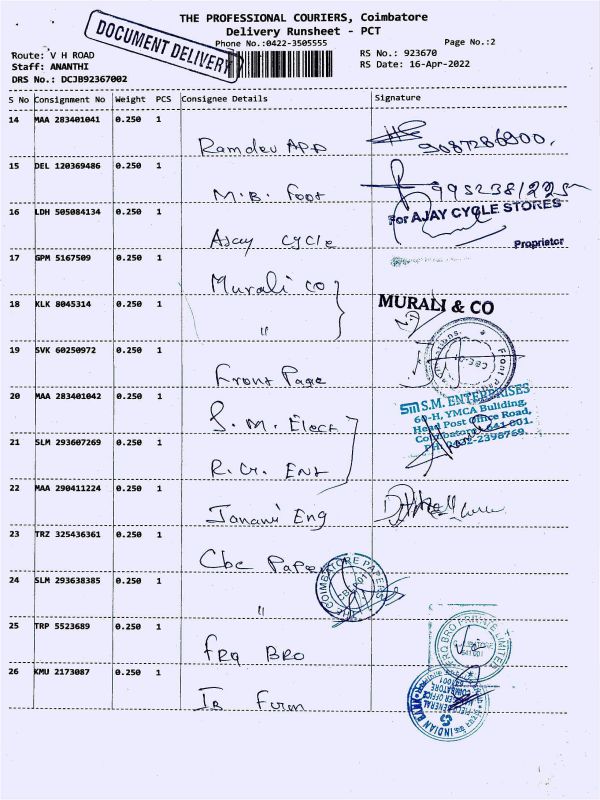 THE PROFESSIONAL COURIERS, Coimbatore
Delivery Runsheet - PCT
DOCUMENT DELIVERY
Phone No.:0422-3505555
Page No.:2
Route: V H ROAD
Staff: ANANTHI
DRS No.: DCJB92367002
RS No.: 923670
RS Date: 16-Apr-2022
S No Consignment No Weight PCS Consignee Details Signature
14 MAA 283401041 0.250 1
Ramdev APP 9087286900.
15 DEL 120369486 0.250 1
M.B. Foot 9952381225
16 LDH 505084134 0.250 1
For AJAY CYCLE STORES
Ajay cycle
Proprietor
17 GPM 5167509 0.250 1
Murali co
18 KLK 8045314 0.250 1
MURALI & CO
"
19 SVK 60250972 0.250 1
Front Page
20 MAA 283401042 0.250 1
S.M. Elect
sm S.M. ENTERPRISES
60-H, YMCA Building,
Head Post Office Road,
Coimbatore - 641 001.
PH: 0422-2398769.
21 SLM 293607269 0.250 1
R.G. Ent
22 MAA 290411224 0.250 1
Janani Eng
23 TRZ 325436361 0.250 1
Cbe Paper
COIMBATORE PAPERS
24 SLM 293638385 0.250 1
"
25 TRP 5523689 0.250 1
FRQ BRO
FRQ BRO PRIVATE LIMITED
26 KMU 2173087 0.250 1
IB Firm
INDIAN BANK